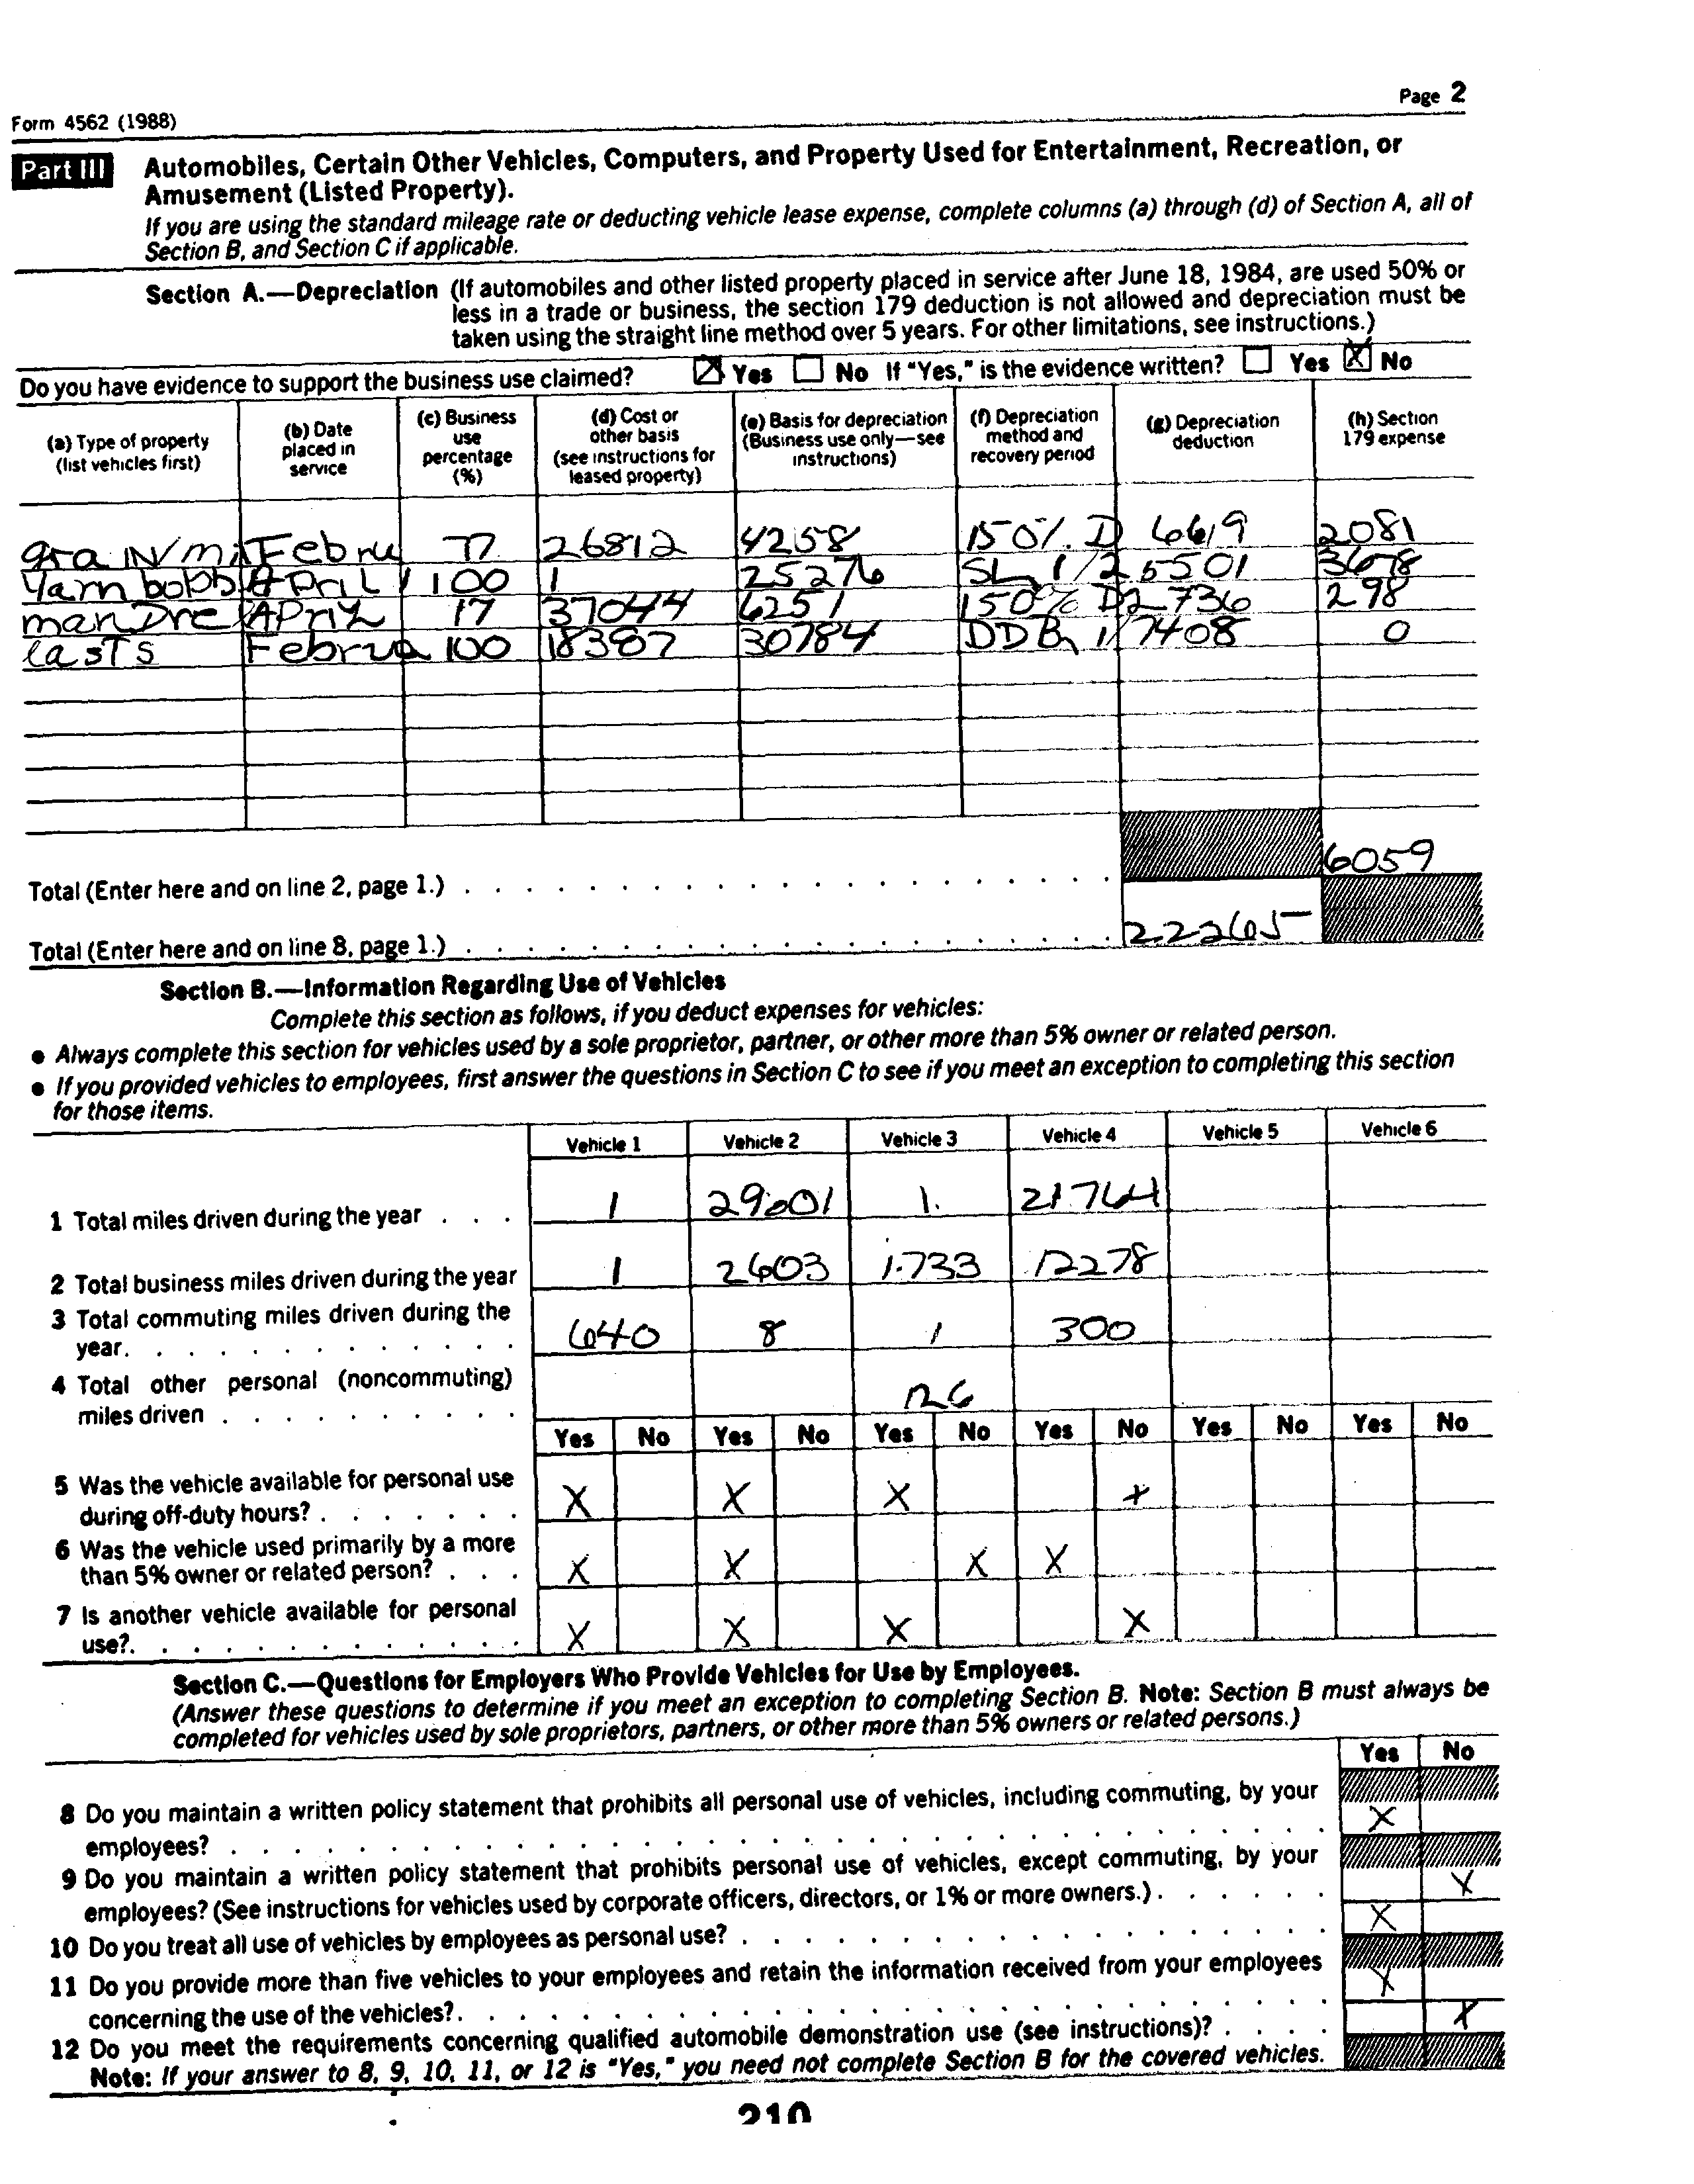 Page 2
Form 4562 (1988)
Part III Automobiles, Certain Other Vehicles, Computers, and Property Used for Entertainment, Recreation, or
Amusement (Listed Property).
If you are using the standard mileage rate or deducting vehicle lease expense, complete columns (a) through (d) of Section A, all of
Section B, and Section C if applicable.
Section A.—Depreciation (If automobiles and other listed property placed in service after June 18, 1984, are used 50% or
less in a trade or business, the section 179 deduction is not allowed and depreciation must be
taken using the straight line method over 5 years. For other limitations, see instructions.)
Do you have evidence to support the business use claimed? X Yes No If "Yes," is the evidence written? Yes X No
(a) Type of property (list vehicles first) (b) Date placed in service (c) Business use percentage (%) (d) Cost or other basis (see instructions for leased property) (e) Basis for depreciation (Business use only—see instructions) (f) Depreciation method and recovery period (g) Depreciation deduction (h) Section 179 expense
grain/mi Febru 77 26812 4258 150% D 6619 2081
Yarn bobb April 1 100 1 25276 SL, 1/2 5501 3678
manDre APriL 17 37044 6251 150% D 2736 298
lasts Februa 100 18387 30784 DDB, 1/ 7408 0
Total (Enter here and on line 2, page 1.) 6059
Total (Enter here and on line 8, page 1.) 22265
Section B.—Information Regarding Use of Vehicles
Complete this section as follows, if you deduct expenses for vehicles:
● Always complete this section for vehicles used by a sole proprietor, partner, or other more than 5% owner or related person.
● If you provided vehicles to employees, first answer the questions in Section C to see if you meet an exception to completing this section
for those items.
Vehicle 1 Vehicle 2 Vehicle 3 Vehicle 4 Vehicle 5 Vehicle 6
1 Total miles driven during the year . . . 1 29601 1. 21764
2 Total business miles driven during the year 1 2603 1.733 12278
3 Total commuting miles driven during the
year. 640 8 1 300
4 Total other personal (noncommuting)
miles driven 126
Yes No Yes No Yes No Yes No Yes No Yes No
5 Was the vehicle available for personal use
during off-duty hours? X X X X
6 Was the vehicle used primarily by a more
than 5% owner or related person? X X X X
7 Is another vehicle available for personal
use?. X X X X
Section C.—Questions for Employers Who Provide Vehicles for Use by Employees.
(Answer these questions to determine if you meet an exception to completing Section B. Note: Section B must always be
completed for vehicles used by sole proprietors, partners, or other more than 5% owners or related persons.)
Yes No
8 Do you maintain a written policy statement that prohibits all personal use of vehicles, including commuting, by your
employees? X
9 Do you maintain a written policy statement that prohibits personal use of vehicles, except commuting, by your
employees? (See instructions for vehicles used by corporate officers, directors, or 1% or more owners.) X
10 Do you treat all use of vehicles by employees as personal use? X
11 Do you provide more than five vehicles to your employees and retain the information received from your employees
concerning the use of the vehicles?. X
12 Do you meet the requirements concerning qualified automobile demonstration use (see instructions)? X
Note: If your answer to 8, 9, 10, 11, or 12 is "Yes," you need not complete Section B for the covered vehicles.
210